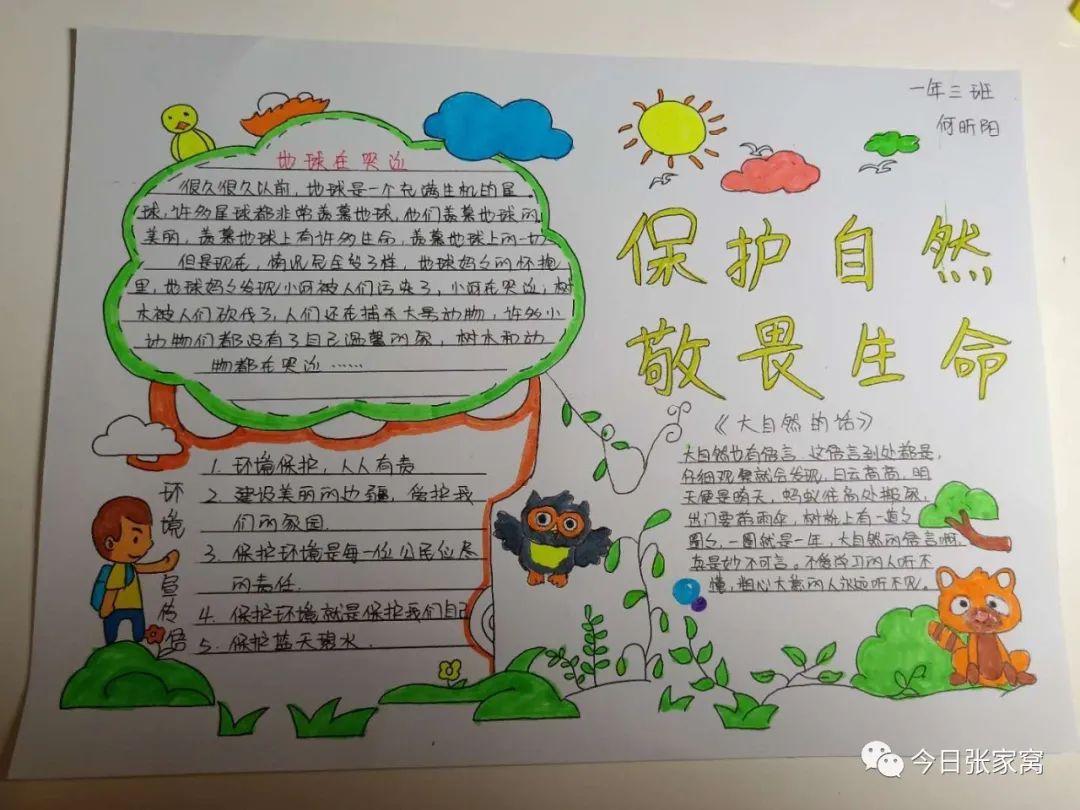 一年三班
何昕阳
保护自然
敬畏生命
地球在哭泣
很久很久以前，地球是一个充满生机的星
球，许多星球都非常羡慕地球，他们羡慕地球的
美丽，羡慕地球上有许多生命，羡慕地球上的一切
但是现在，情况完全变了样，地球妈々的怀抱
里，地球妈々发现小河被人们污染了，小河在哭泣；树
木被人们砍伐了，人们还在捕杀大量动物，许多小
动物们都没有了自己温馨的家，树木和动
物都在哭泣……
环境宣传语
1. 环境保护，人人有责
2. 建设美丽的边疆，保护我
们的家园.
3. 保护环境是每一位公民应尽
的责任.
4. 保护环境就是保护我们自己
5. 保护蓝天碧水.
《大自然的话》
大自然也有语言，这语言到处都是，
仔细观察就会发现，白云高高，明
天便是晴天，蚂蚁往高处搬家，
出门要带雨伞，树桩上有一道々
圈々，一圈就是一年，大自然的语言啊，
真是妙不可言。不爱学习的人听不
懂，粗心大意的人永远听不见。
今日张家窝